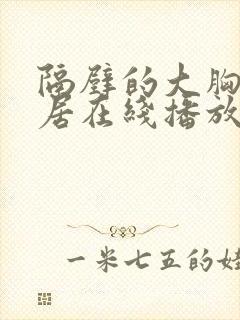 隔壁的大胸
居在綫播放
一米七五的娃